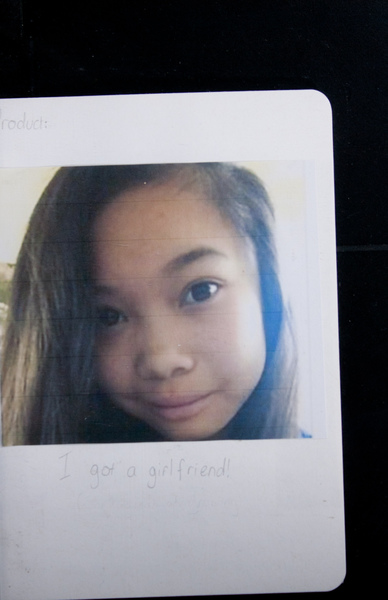 Product:
I got a girlfriend!